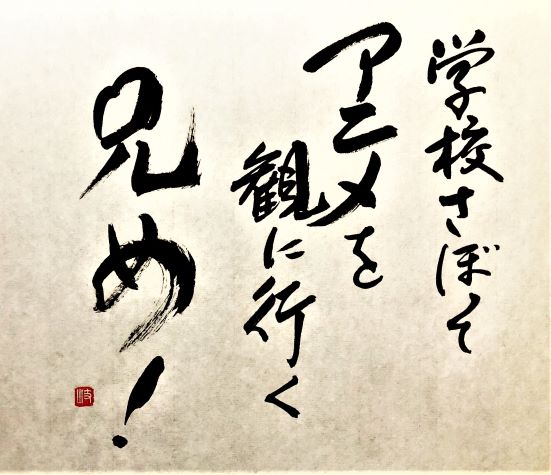 学校さぼって
アニメを
観に行く
兄め!